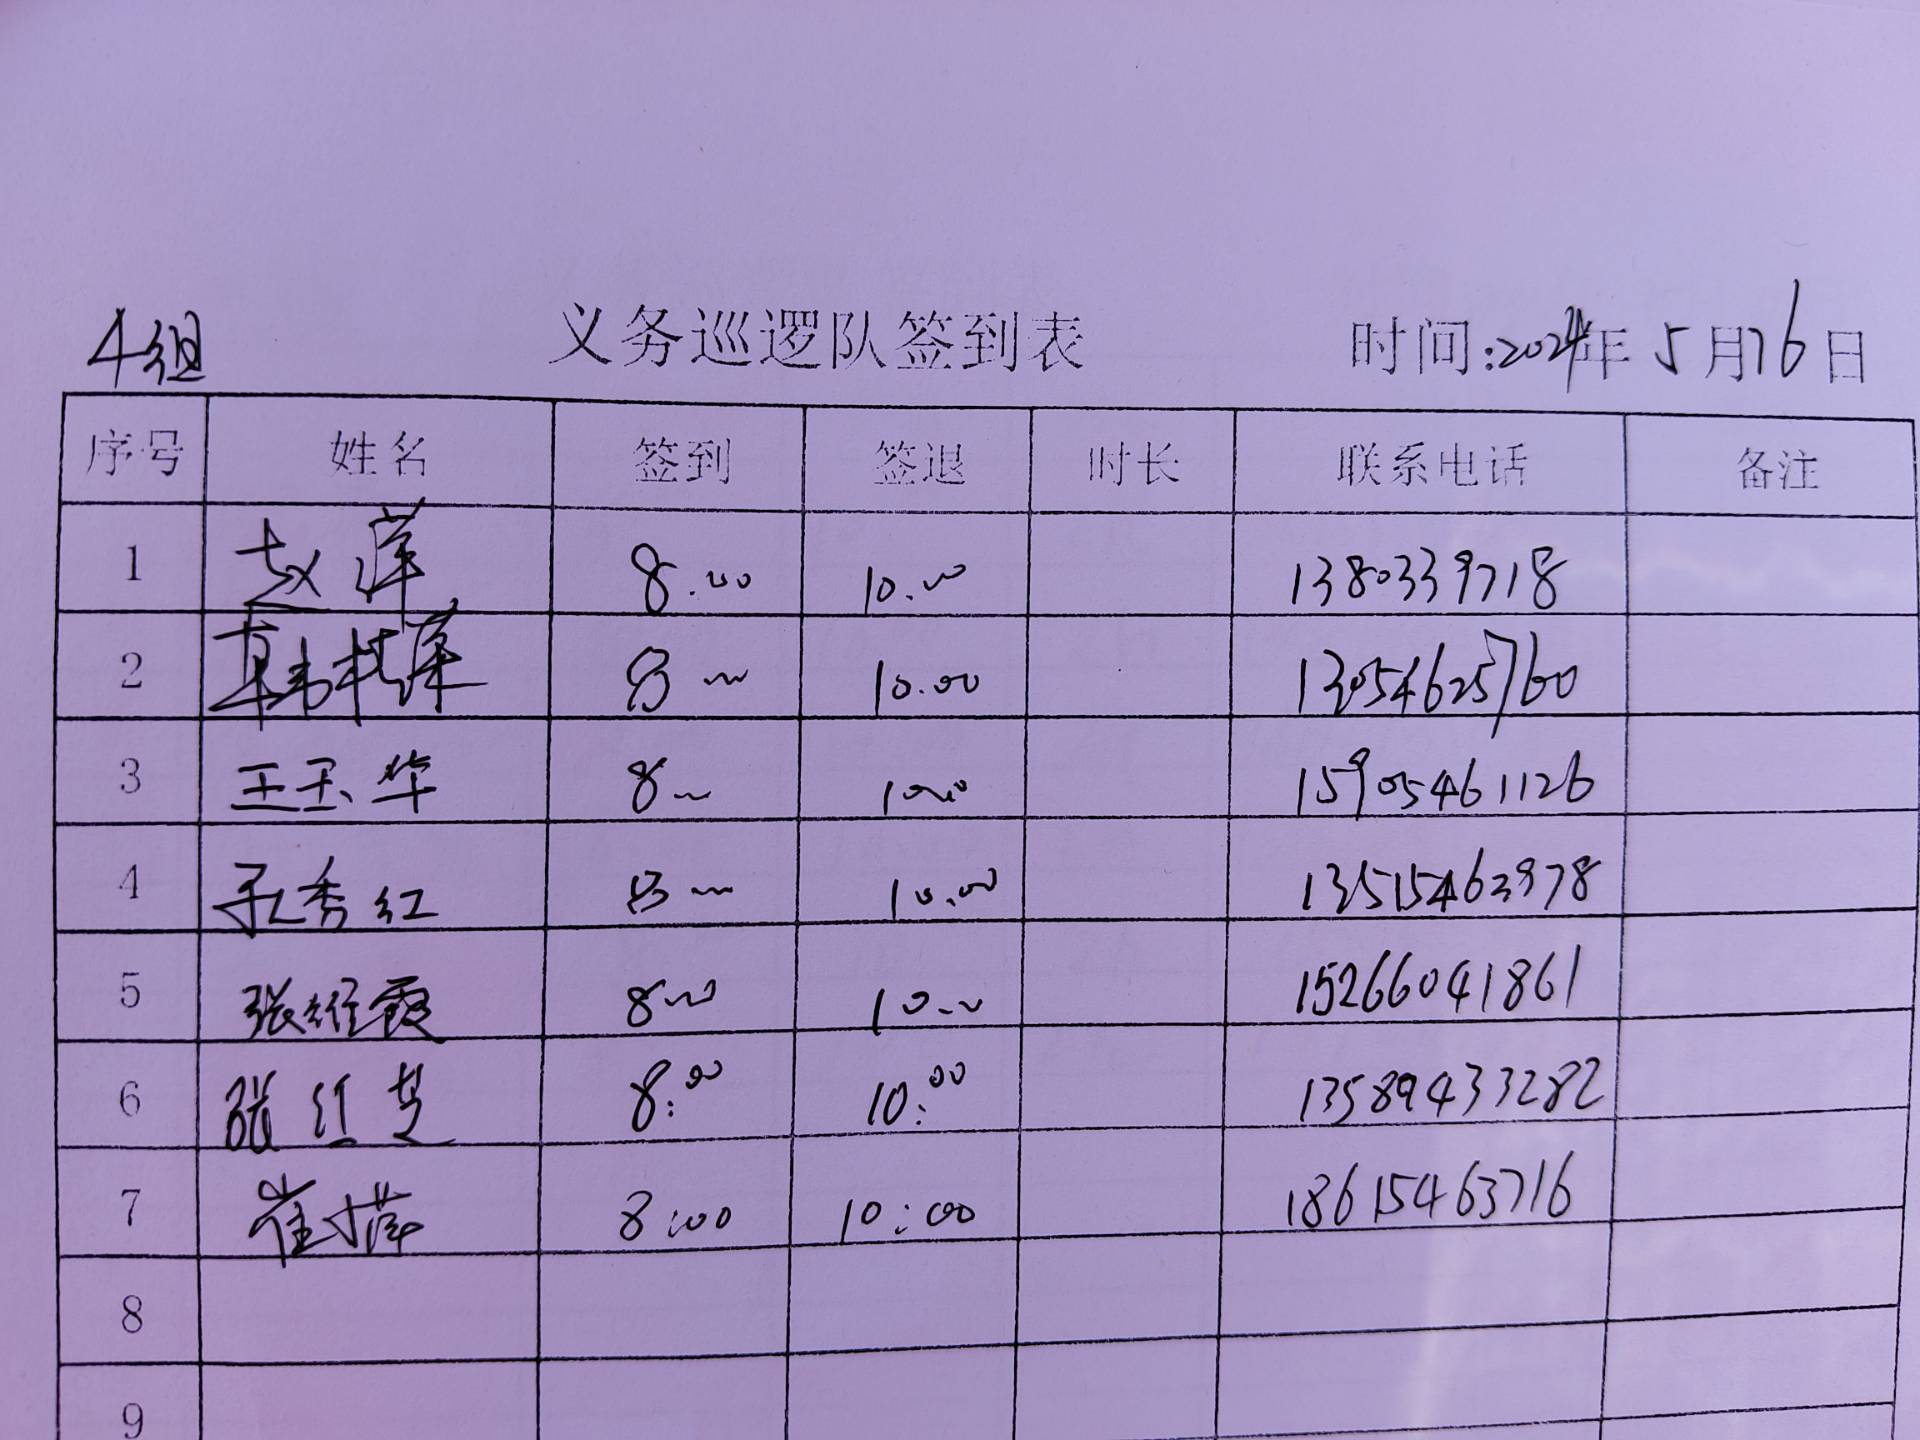 4组 义务巡逻队签到表 时间:2024年5月16日
序号 姓名 签到 签退 时长 联系电话 备注
1 赵萍 8.00 10.00 1380339718
2 8 00 10.00 13054625760
3 王玉华 8 00 10.00 15905461126
4 孔秀红 8 00 10.00 13515463978
5 张维霞 8 00 10.00 15266041861
6 张红芝 8:00 10:00 13589433282
7 崔萍 8:00 10:00 18615463716
8
9